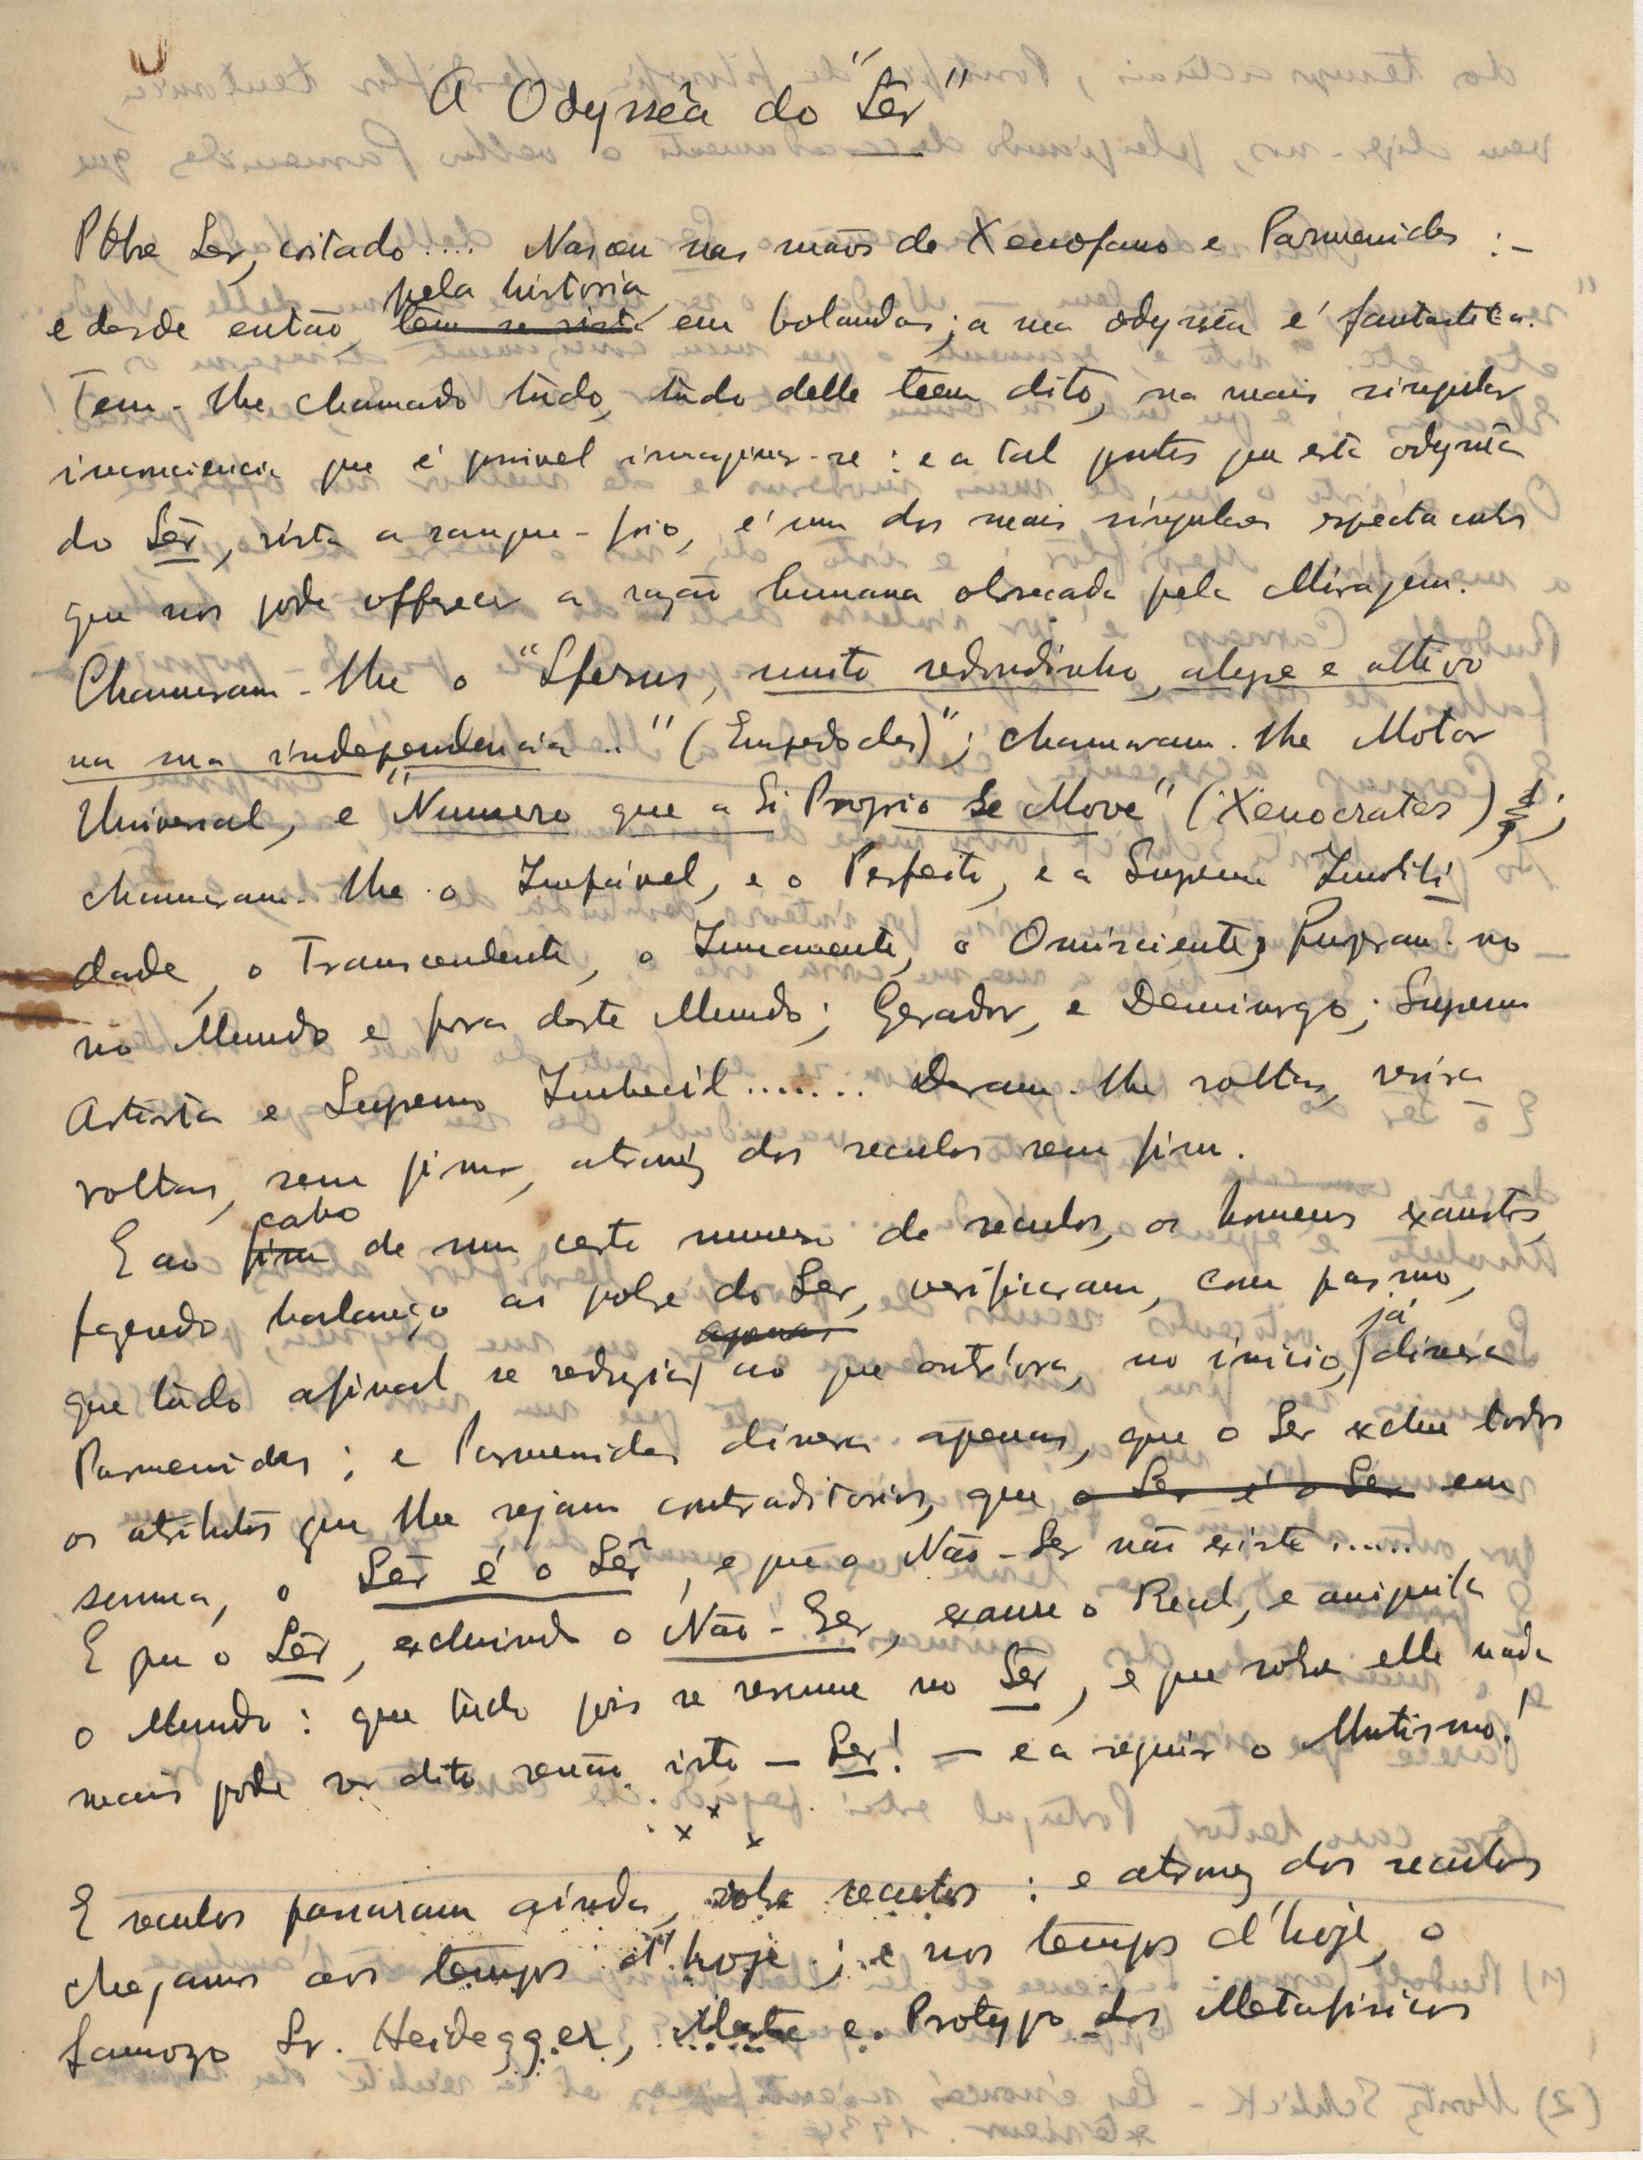 A Odysseâ do "Sêr"
Pôbre Ser, coitado.... Nasceu nas mãos de Xenofano e Parmenides :-
pela historia
e desde então, tem se visto em bolandas; a sua odysseâ é fantastica.
Tem-lhe chamado tudo, tudo delle teem dito, na mais singular
inconsciencia que é possivel imaginar-se: e a tal ponto que esta odysseâ
do Sêr, vista a sangue-frio, é um dos mais singulares espectaculos
que nos pode offerecer a razão humana obsecada pela Miragem.
Chamaram-lhe o "Sferus, muito redondinho, alegre e altivo
na sua independencia.." (Empedocles)"; chamaram-lhe Motor
Universal, e "Numero que a Si Proprio Se Move" (Xenocrates);
chamaram-lhe o Impável, e o Perfeito, e a Suprema Imobili
dade, o Transcendente, o Immanente, o Omnisciente; puzeram-no
no Mundo e fora deste Mundo; Gerador, e Demiurgo; Supremo
Artista e Supremo Imbecil....... Deram-lhe voltas, varias
voltas, sem fim, atravéz dos seculos sem fim.
cabo
E ao fim de um certo numero de seculos, os homens exaustos,
fazendo balanço ao pobre do Ser, verificaram, com pasmo,
apenas já
que tudo afinal se reduzia ao que outr'ora, no inicio, dissera
Parmenides; e Parmenides dissera apenas, que o Ser exclue todos
os atributos que lhe sejam contraditorios, que o Ser é o Ser em
summa, o Sêr é o Sêr, e que o Não-Ser não existe......
E que o Sêr, excluindo o Não-Ser, exaure o Real, e aniquila
o Mundo: que tudo pois se resume no Sêr, e que sobre elle nada
mais pode ser dito senão isto — Ser! — e a seguir o Mutismo!
x x x
E seculos passaram ainda, sobre seculos: e atravez dos seculos
chegamos aos tempos d'hoje; e nos tempos d'hoje, o
famozo Sr. Heidegger, Mestre e Protypo dos Metafisicos